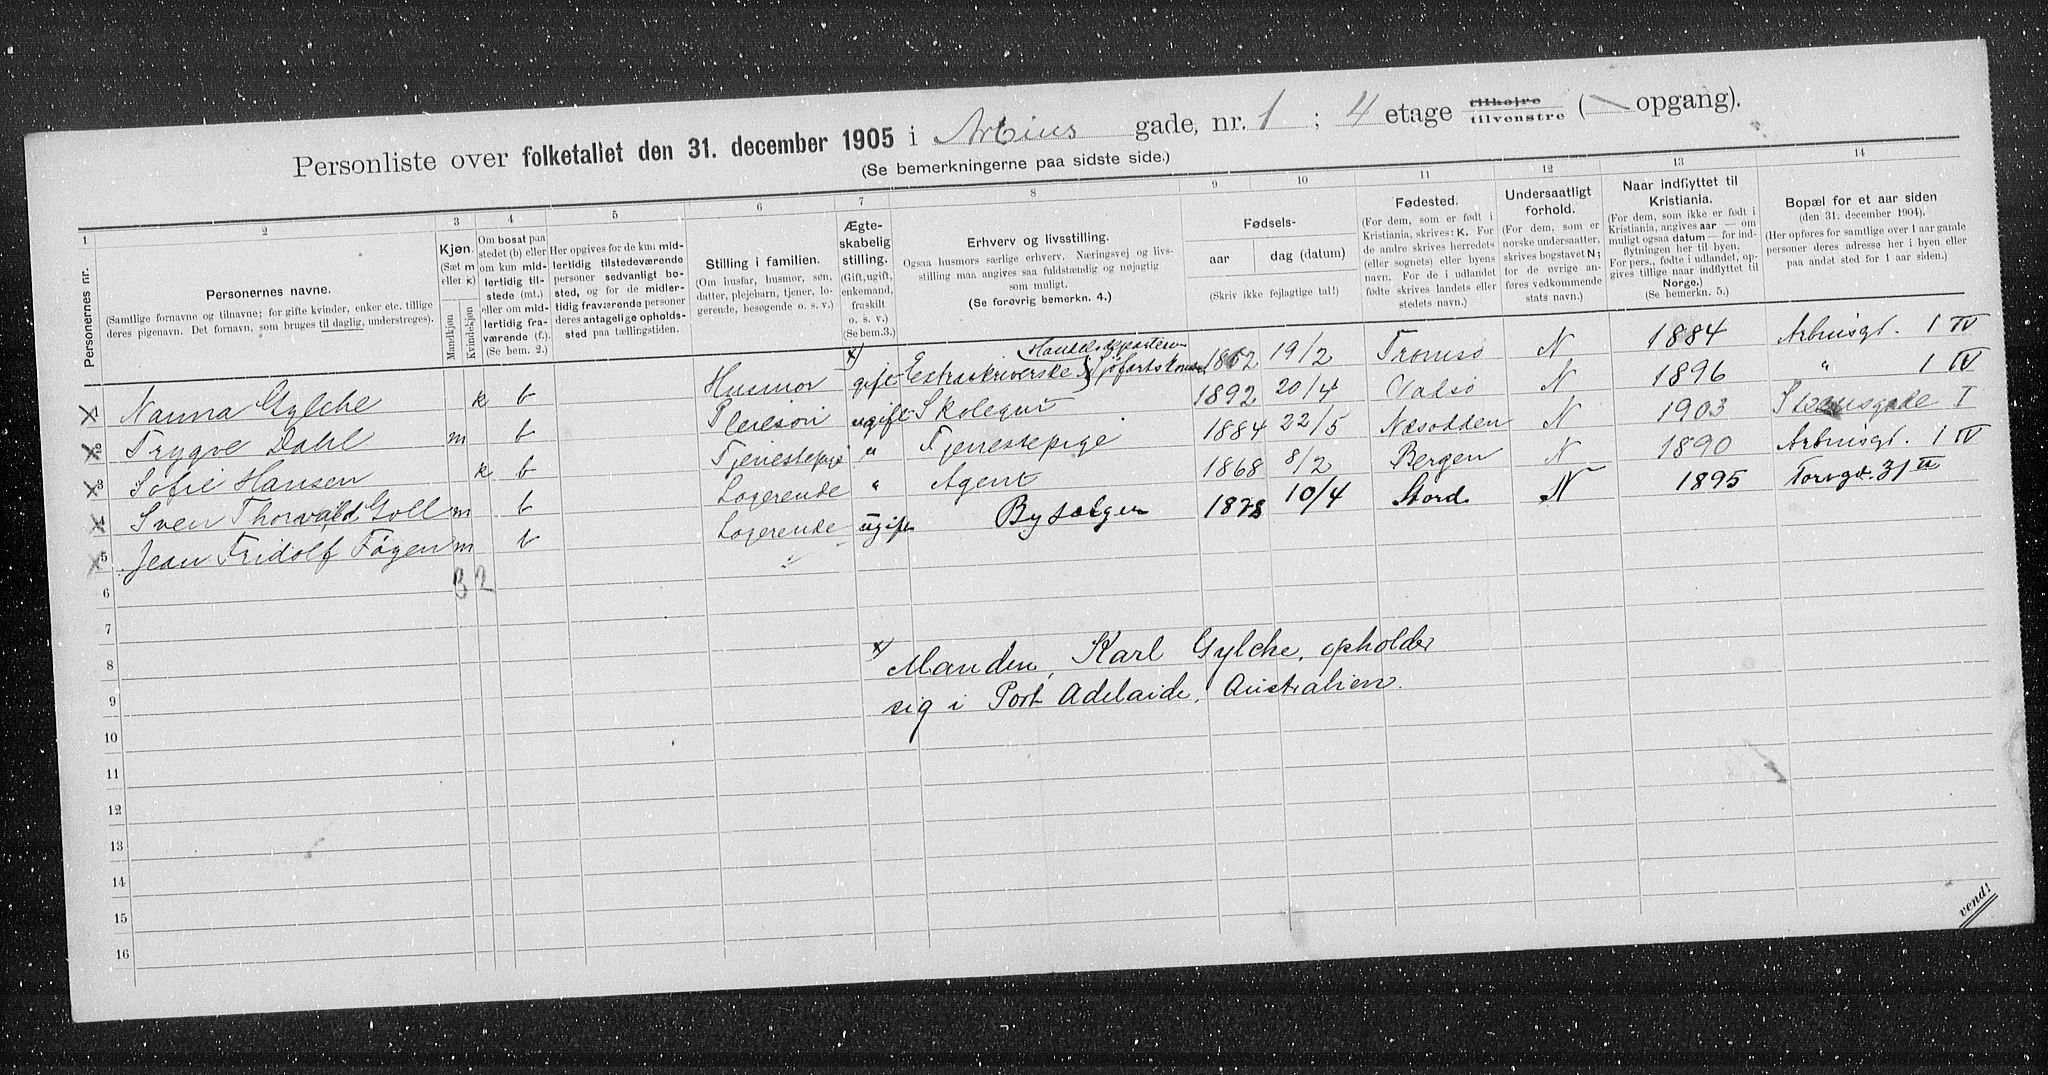 Personliste over folketallet den 31. december 1905 i Arbins gade, nr. 1 ; 4 etage tilhøjre tilvenstre ( opgang).
(Se bemerkningerne paa sidste side.)
1 2 3 4 5 6 7 8 9 10 11 12 13 14
Personernes nr.
Personernes navne.
(Samtlige fornavne og tilnavne; for gifte kvinder, enker etc. tillige
deres pigenavn. Det fornavn, som bruges til daglig, understreges).
Kjøn.
(Sæt m
eller k)
Mandkjøn
Kvindekjøn
Om bosat paa
stedet (b) eller
om kun mid-
lertidig til-
stede (mt.)
eller om mid-
lertidig fra-
værende (f.)
(Se bem. 2.)
Her opgives for de kun mid-
lertidig tilstedeværende
personer sedvanligt bo-
sted, og for de midler-
tidig fraværende personer
deres antagelige opholds-
sted paa tællingstiden.
Stilling i familien.
(Om husfar, husmor, søn,
datter, plejebarn, tjener, lo-
gerende, besøgende o. s. v.)
Ægte-
skabelig
stilling.
(Gift, ugift,
enkemand,
fraskilt
o. s. v.)
(Se bem.3.)
Erhverv og livsstilling.
Ogsaa husmors særlige erhverv. Næringsvej og livs-
stilling maa angives saa fuldstændig og nøjagtig
som muligt.
(Se forøvrig bemerkn. 4.)
Fødsels-
aar dag (datum)
(Skriv ikke fejlagtige tal!)
Fødested.
(For dem, som er født i
Kristiania, skrives: K. For
de andre skrives herredets
(eller sognets) eller byens
navn. For de i udlandet
fødte skrives landets eller
stedets navn.)
Undersaatligt
forhold.
(For dem, som er
norske undersaatter,
skrives bogstavet N;
for de øvrige an-
føres vedkommende
stats navn.)
Naar indflyttet til
Kristiania.
(For dem, som ikke er født i
Kristiania, angives aar — om
muligt ogsaa datum — for ind-
flytningen her til byen.
For pers., fødte i udlandet, op-
gives tillige naar indflyttet til
Norge.)
(Se bemerkn. 5.)
Bopæl for et aar siden
(den 31. december 1904).
(Her opføres for samtlige over 1 aar gamle
personer deres adresse her i byen eller
paa andet sted for 1 aar siden.)
1 Nanna Gylche k b Husmor gift x) Extraskriverske Handelsdepartem 1862 19/2 Tromsø N 1884 Arbinsgt. 1 IV
2 Trygve Dahl m b Pleiesøn ugift Skolegut 1892 20/4 Vadsø N 1896 " 1 IV
3 Sofie Hansen k b Tjenestepige " Tjenestepige 1884 22/5 Næsodden N 1903 Steensgade I
4 Sven Thorvald Goll m b Logerende " Agent 1868 8/2 Bergen N 1890 Arbinsgt. 1 IV
5 Jean Fridolf Fögen m b Logerende ugift Bysælger 1878 10/4 Stord N 1895 Torvgd. 31 III
6 3 2
7
8 x) Manden, Karl Gylche, opholder
9 sig i Port Adelaide, Australien.
10
11
12
13
14
15
16
vend!